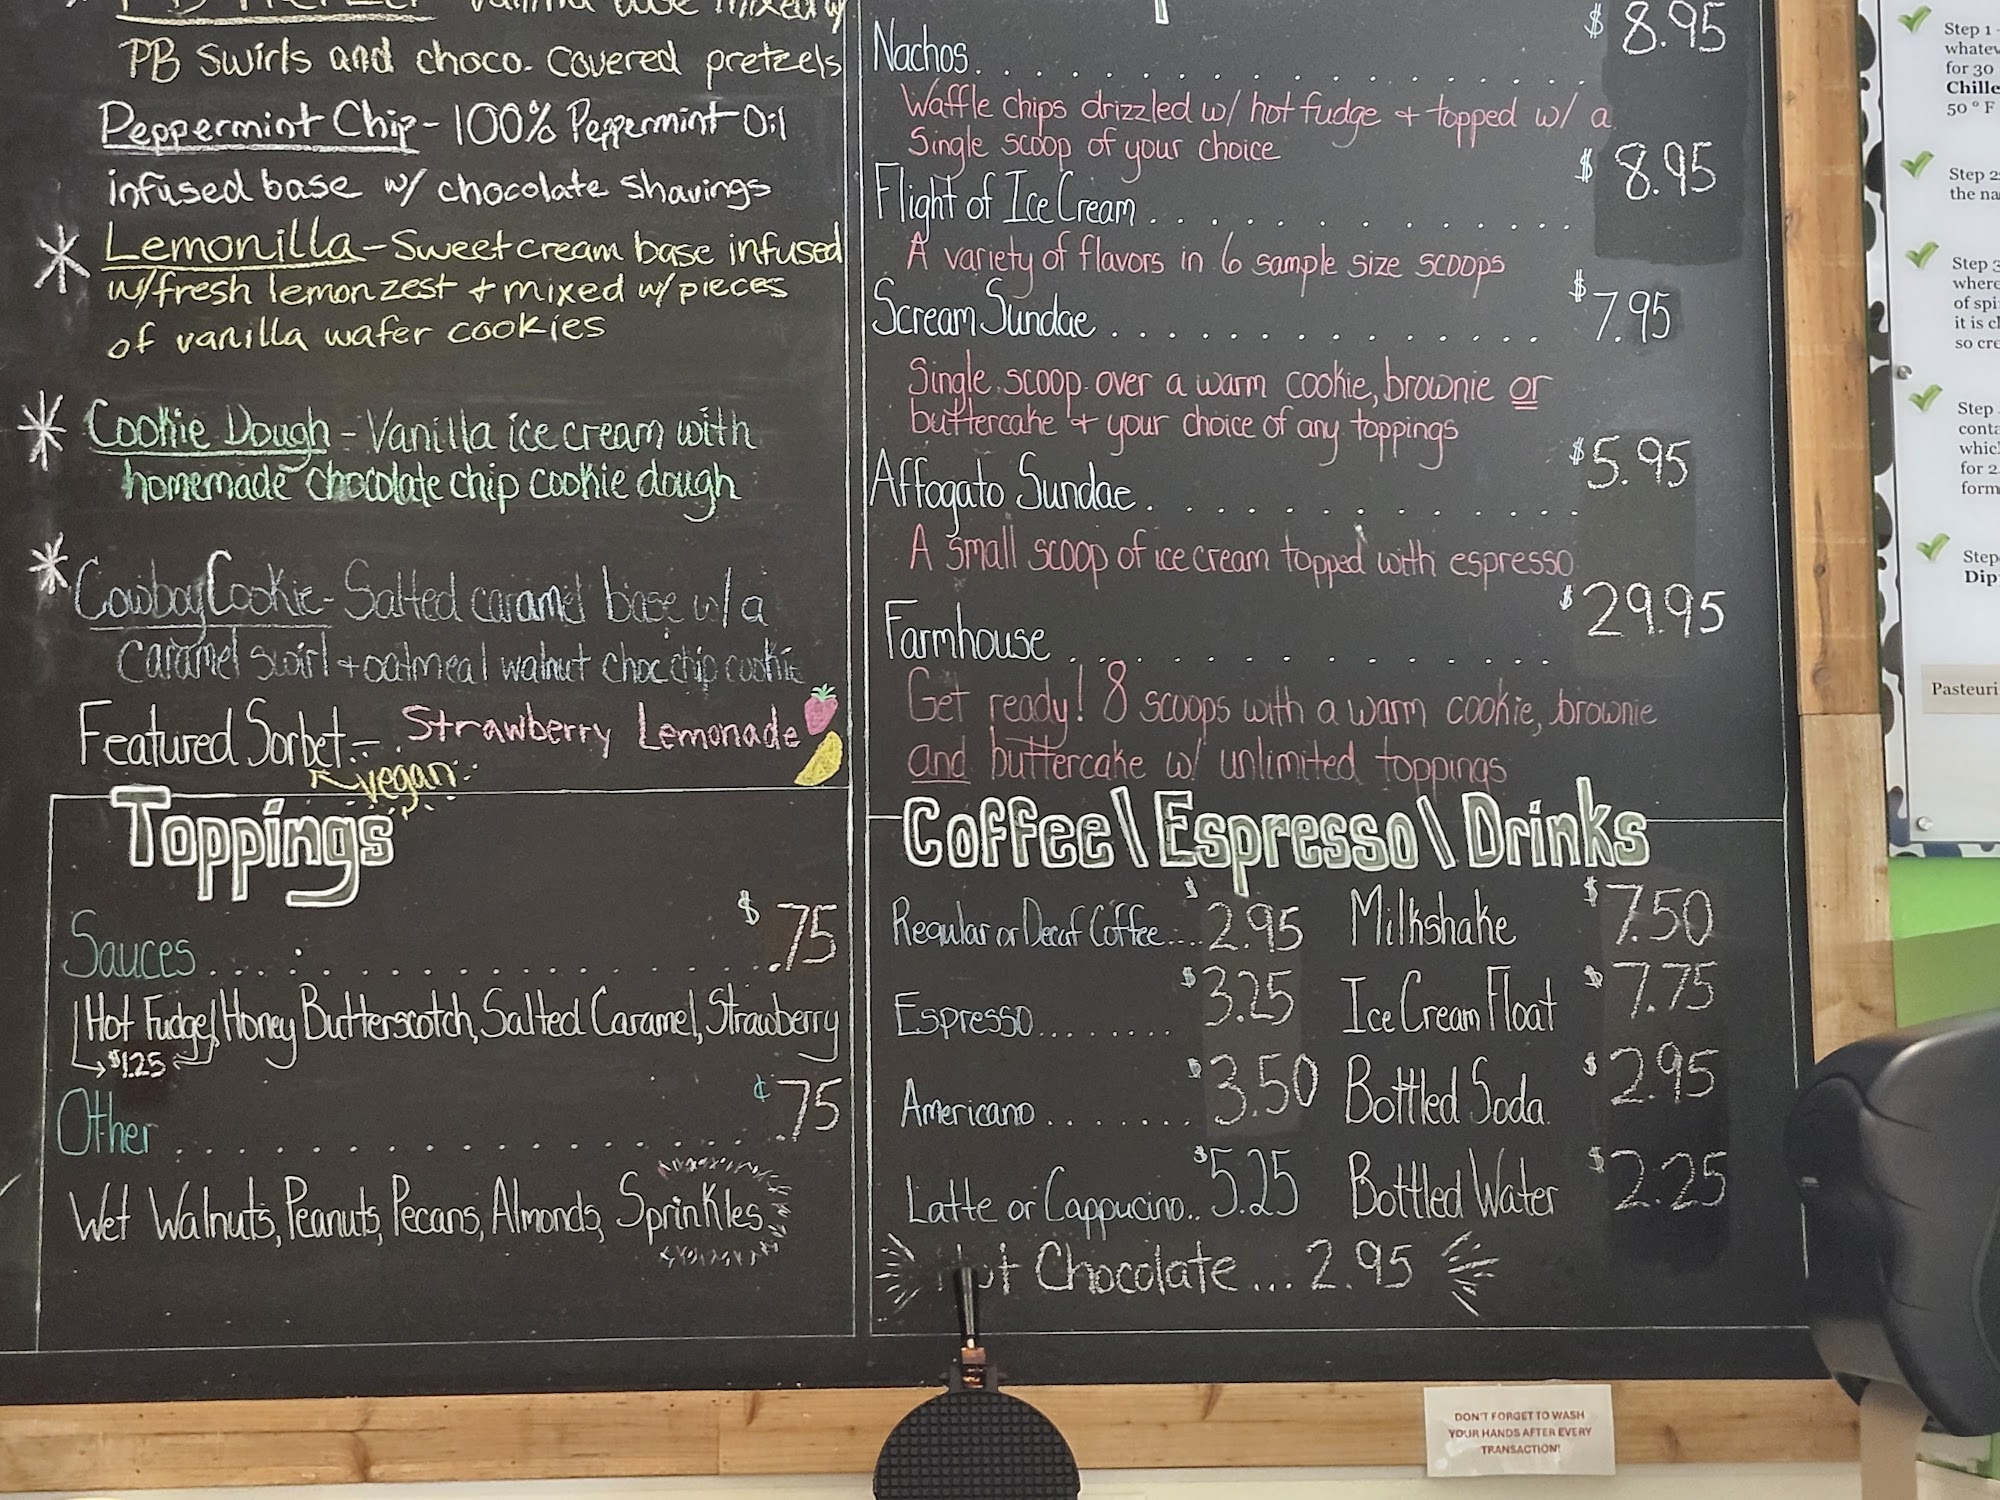 PB swirls and choco. covered pretzels
Peppermint Chip - 100% Peppermint Oil
infused base w/ chocolate shavings
* Lemonilla - Sweet cream base infused
w/ fresh lemon zest + mixed w/ pieces
of vanilla wafer cookies
* Cookie Dough - Vanilla ice cream with
homemade chocolate chip cookie dough
* Cowboy Cookie - Salted caramel base w/ a
caramel swirl + oatmeal walnut choc chip cookie
Featured Sorbet - Strawberry Lemonade
vegan
Toppings
Sauces . . . . . . . . . . . . . . . . . . $ .75
Hot Fudge, Honey Butterscotch, Salted Caramel, Strawberry
$1.25
Other . . . . . . . . . . . . . . . . . . ¢ .75
Wet Walnuts, Peanuts, Pecans, Almonds, Sprinkles
Nachos . . . . . . . . . . . . . . . . $ 8.95
Waffle chips drizzled w/ hot fudge + topped w/ a
Single scoop of your choice
Flight of Ice Cream . . . . . . . . . . . . $ 8.95
A variety of flavors in 6 sample size scoops
Scream Sundae . . . . . . . . . . . . . $ 7.95
Single scoop over a warm cookie, brownie or
buttercake + your choice of any toppings
Affogato Sundae . . . . . . . . . . . . $5.95
A small scoop of ice cream topped with espresso
Farmhouse . . . . . . . . . . . . . . $29.95
Get ready! 8 scoops with a warm cookie, brownie
and buttercake w/ unlimited toppings
Coffee\Espresso\Drinks
Regular or Decaf Coffee.... $2.95 Milkshake $7.50
Espresso........ $3.25 Ice Cream Float $7.75
Americano ....... $3.50 Bottled Soda $2.95
Latte or Cappucino.. $5.25 Bottled Water $2.25
Chocolate... 2.95
Step 1 -
for 30
Chille
50 ° F
Step 2
the
Step 3
where
of
it is
so
Step
for 2
form
Step
Pasteuri
DON'T FORGET TO WASH
YOUR HANDS AFTER EVERY
TRANSACTION!